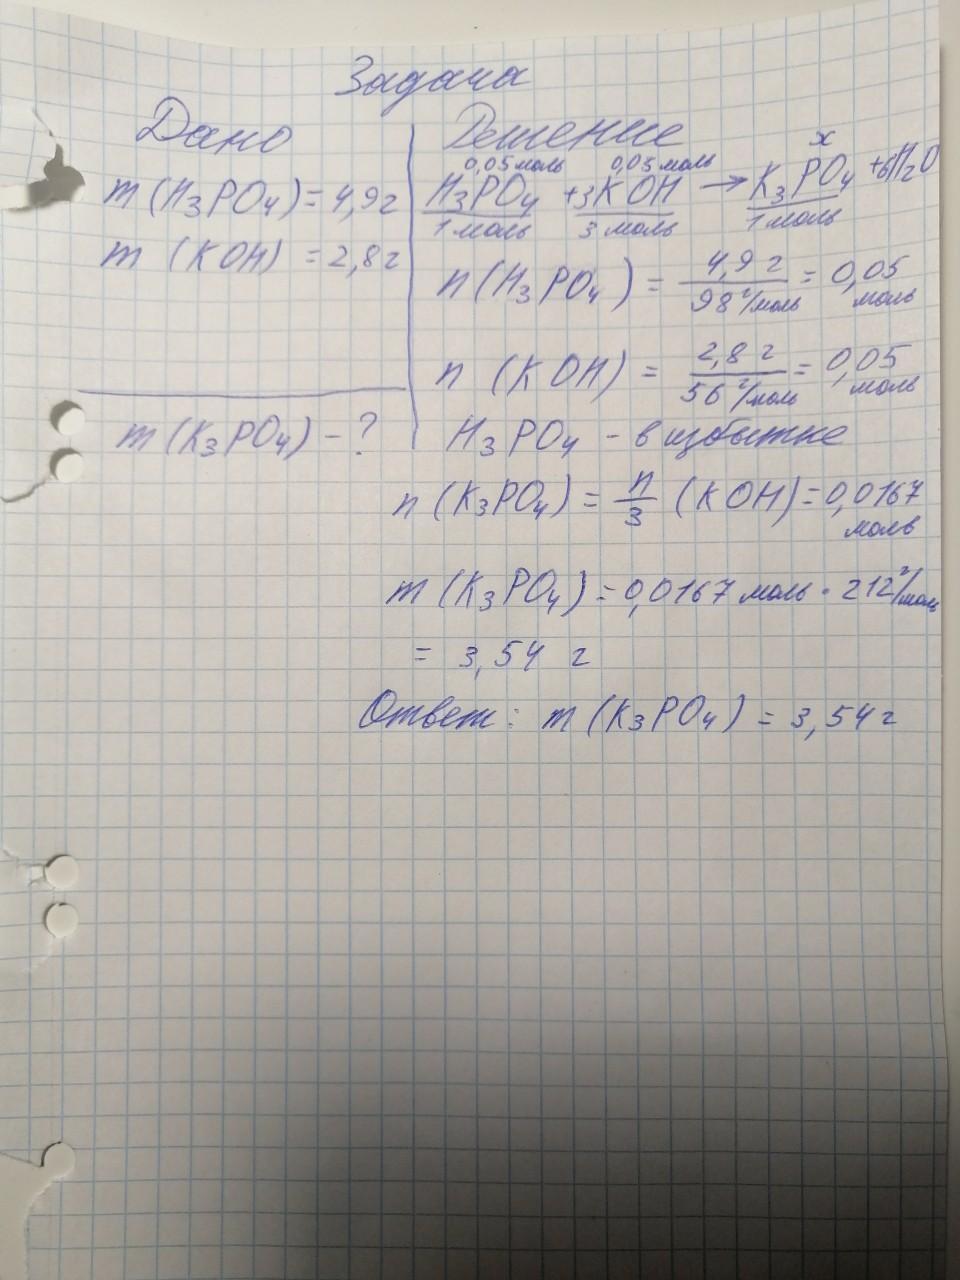 Задача
Дано
m (H₃PO₄) = 4,9г
m (KOH) = 2,8г
m (K₃PO₄) - ?
Решение
0,05 моль 0,05 моль x
H₃PO₄ + 3KOH → K₃PO₄ + H₂O
1 моль 3 моль 1 моль
n (H₃PO₄) = 4,9 г / 98 г/моль = 0,05 моль
n (KOH) = 2,8 г / 56 г/моль = 0,05 моль
H₃PO₄ - в избытке
n (K₃PO₄) = n/3 (KOH) = 0,0167 моль
m (K₃PO₄) = 0,0167 моль · 212 г/моль
= 3,54 г
Ответ: m (K₃PO₄) = 3,54 г